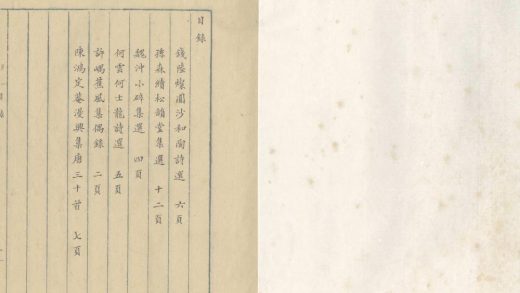 目錄
錢陸燦圓沙和陶詩選 六頁
孫森繪松韻堂集選 十二頁
魏沖小碎集選 四頁
何雲何士龍詩選 五頁
許嵎蕉風集偶錄 二頁
陳鴻定菴漫興集唐三十首 七頁